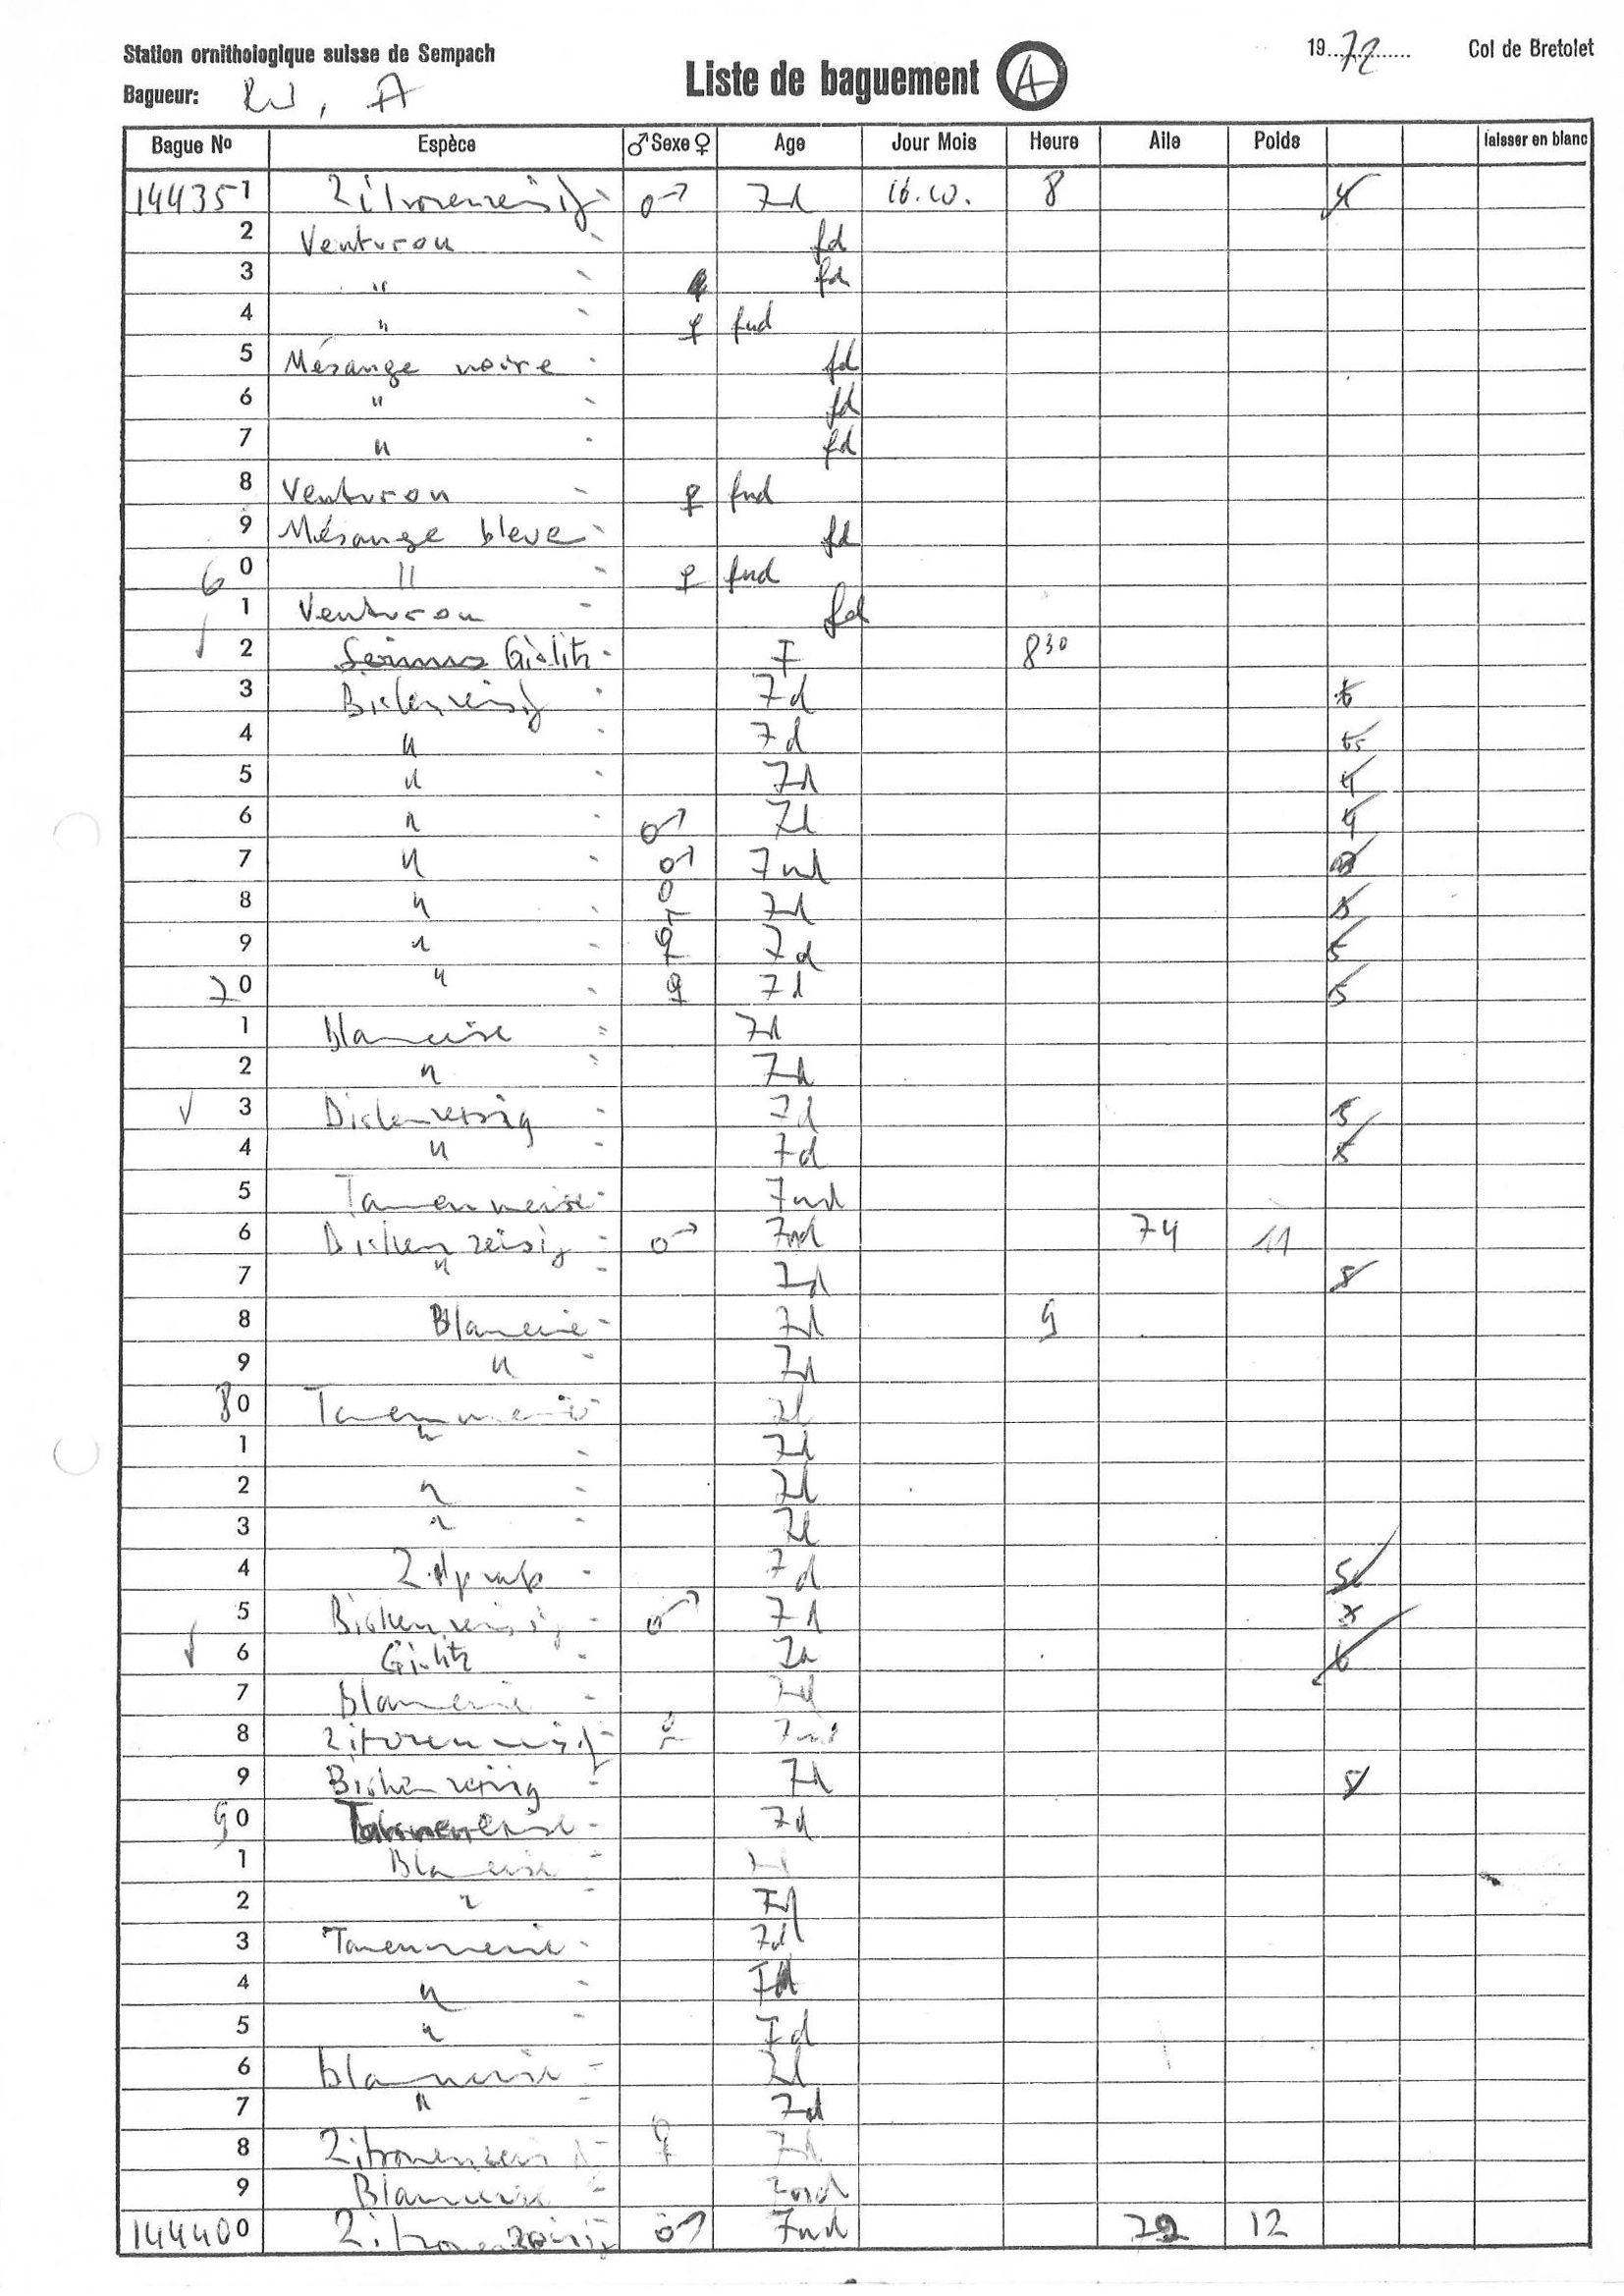 Station ornithologique suisse de Sempach
Bagueur: RW, A
Liste de baguement A
1972 Col de Bretolet
Bague No Espèce ♂Sexe♀ Age Jour Mois Heure Aile Poids laisser en blanc
144351 Zitronenzeisig - ♂ 7d 16.10. 8 4
2 Venturon - fd
3 " - fd
4 " - ♀ fnd
5 Mésange noire - fd
6 " - fd
7 " - fd
8 Venturon - ♀ fnd
9 Mésange bleue - fd
60 " - ♀ fnd
1 Venturon - fd
2 Girlitz - 7 830
3 Birkenzeisig - 7d
4 " - 7d
5 " - 7d 4
6 " - ♂ 7d 4
7 " - ♂ 7nd
8 " - ♀ 7d 5
9 " - ♀ 7d 5
70 " - ♀ 7d 5
1 Blaumeise - 7d
2 " - 7d
3 Birkenzeisig - 7d 5
4 " - 7d 5
5 Tannenmeise - 7nd
6 Birkenzeisig - ♂ 7nd 74 11
7 " - 7d 5
8 Blaumeise - 7d 9
9 " - 7d
80 Tannenmeise - 7d
1 " - 7d
2 " - 7d
3 " - 7d
4 Zilpzalp - 7d
5 Birkenzeisig - ♂ 7d
6 Girlitz - 6
7 Blaumeise - 7d
8 Zitronenzeisig - ♀ 7nd
9 Birkenzeisig - 7d 5
90 Tannenmeise - 7d
1 Blaumeise - 7d
2 " - 7d
3 Tannenmeise - 7d
4 " - 7d
5 " - 7d
6 Blaumeise - 7d
7 " - 7d
8 Zitronenzeisig - ♀ 7d
9 Blaumeise - 7nd
144400 Zitronenzeisig ♂ 7nd 79 12